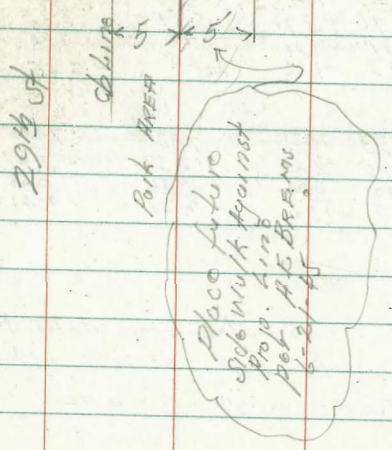 29th St
cb Line
5
5
Park AREA
Place future
Side Walk Against
Prop. Line
per A E BREMS
6-21-45